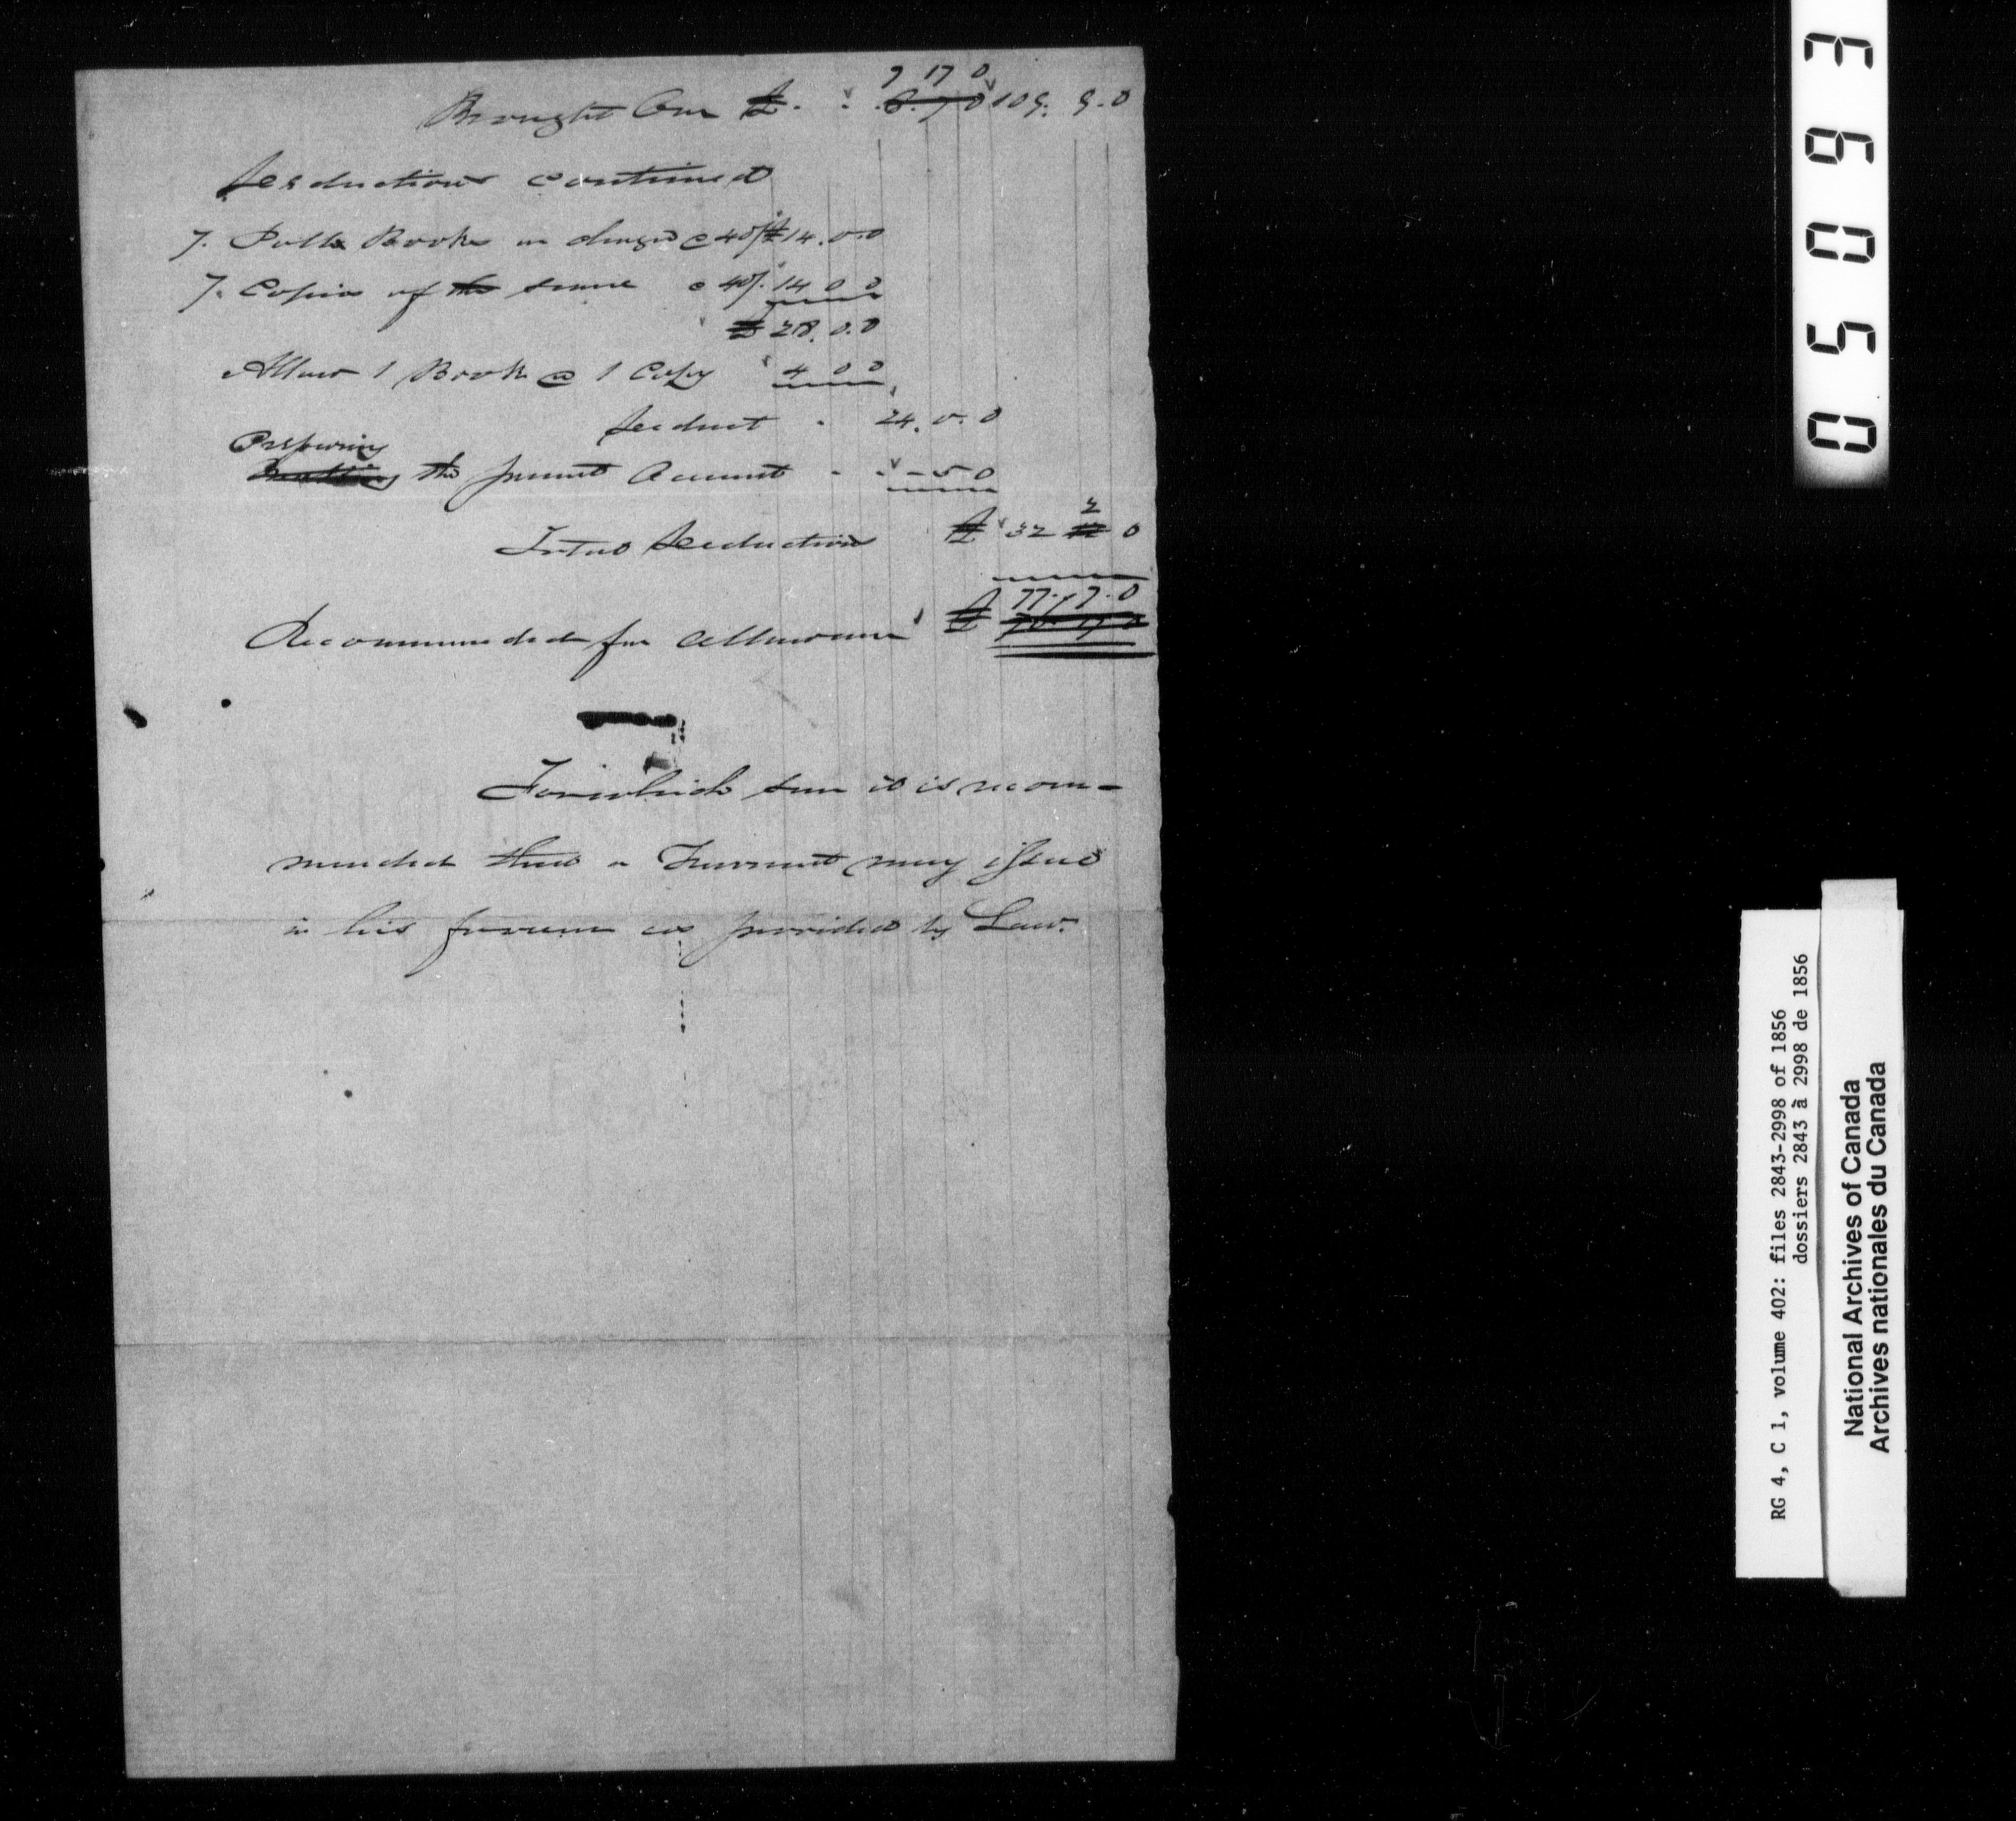 7 17 0
Brought Over £ . . 8. 7 0 109. 9. 0
Deductions continued
7. Polls Books as charged @ 40/ £14. 0. 0
7. Copies of the same @ 40/. 14 0 0
£ 28. 0. 0
Allow 1 Book @ 1 Copy 4 0 0
Deduct . 24. 0. 0
Preparing
the present Account . . - 5 0
2
Total Deduction £ 32 0
77. 7. 0
Recommended for allowance £
For which sum it is recom-
mended that a Warrant may issue
in his favour as provided by Law.
0 5 0 9 3
RG 4, C 1, volume 402: files 2843-2998 of 1856
dossiers 2843 à 2998 de 1856
National Archives of Canada
Archives nationales du Canada